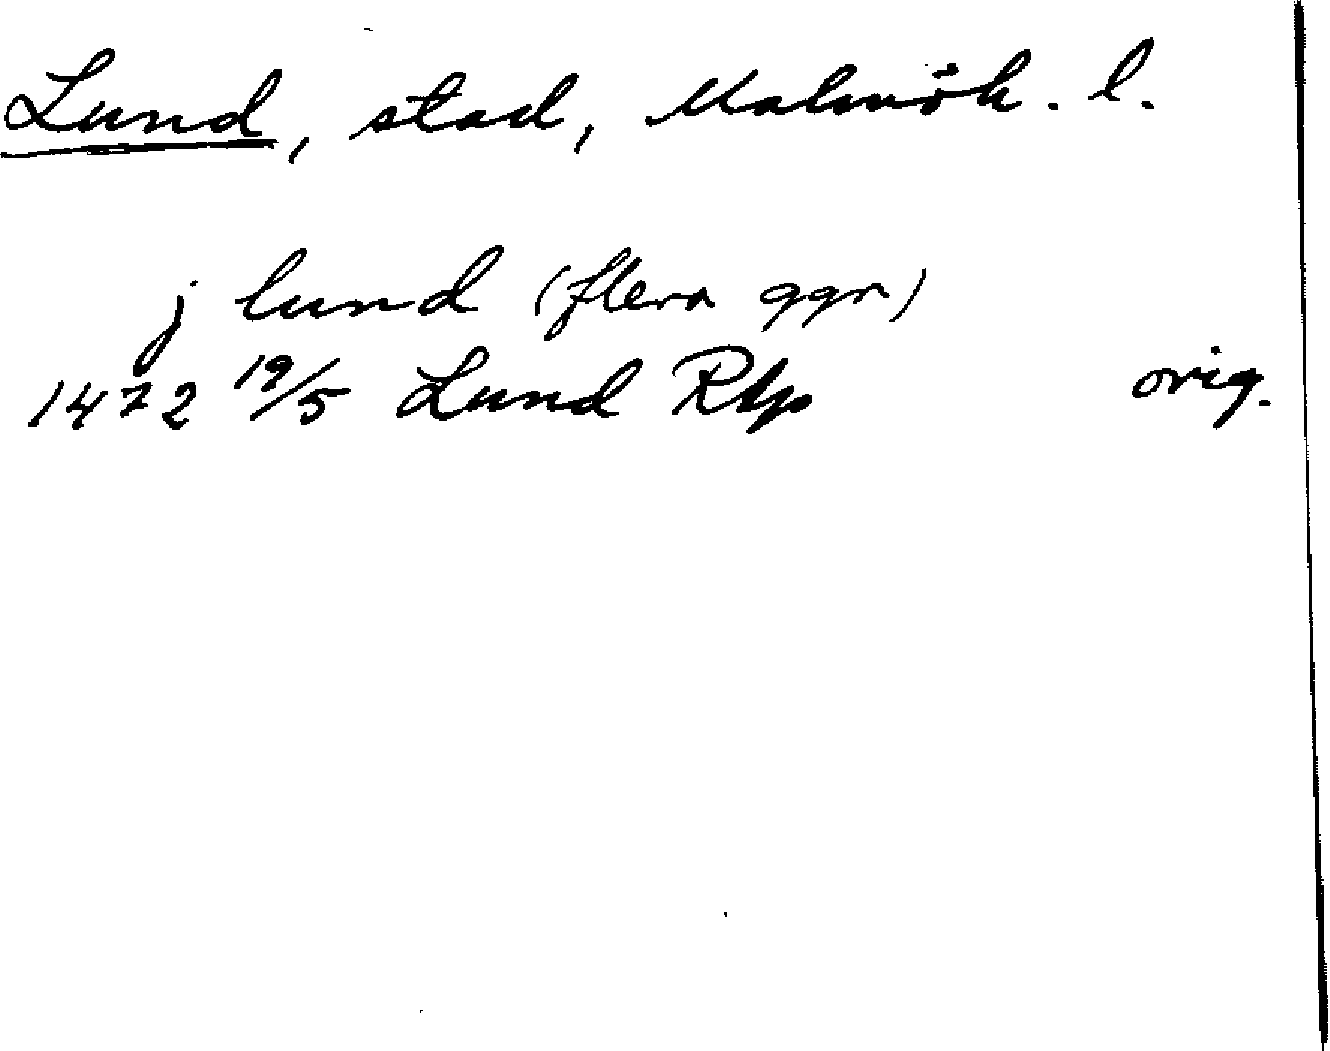 Lund, stad, Malmöh. l.
j lund (flera ggr)
1472 19/5 Lund RAp orig.